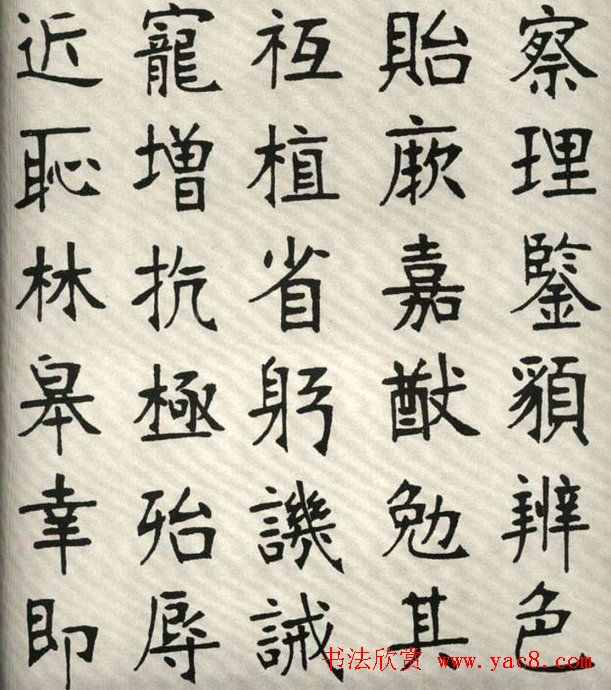 察理鑒貌辨色
貽厥嘉猷勉其
祗植省躬譏誡
寵增抗極殆辱
近恥林皋幸即
书法欣赏 www.yac8.com